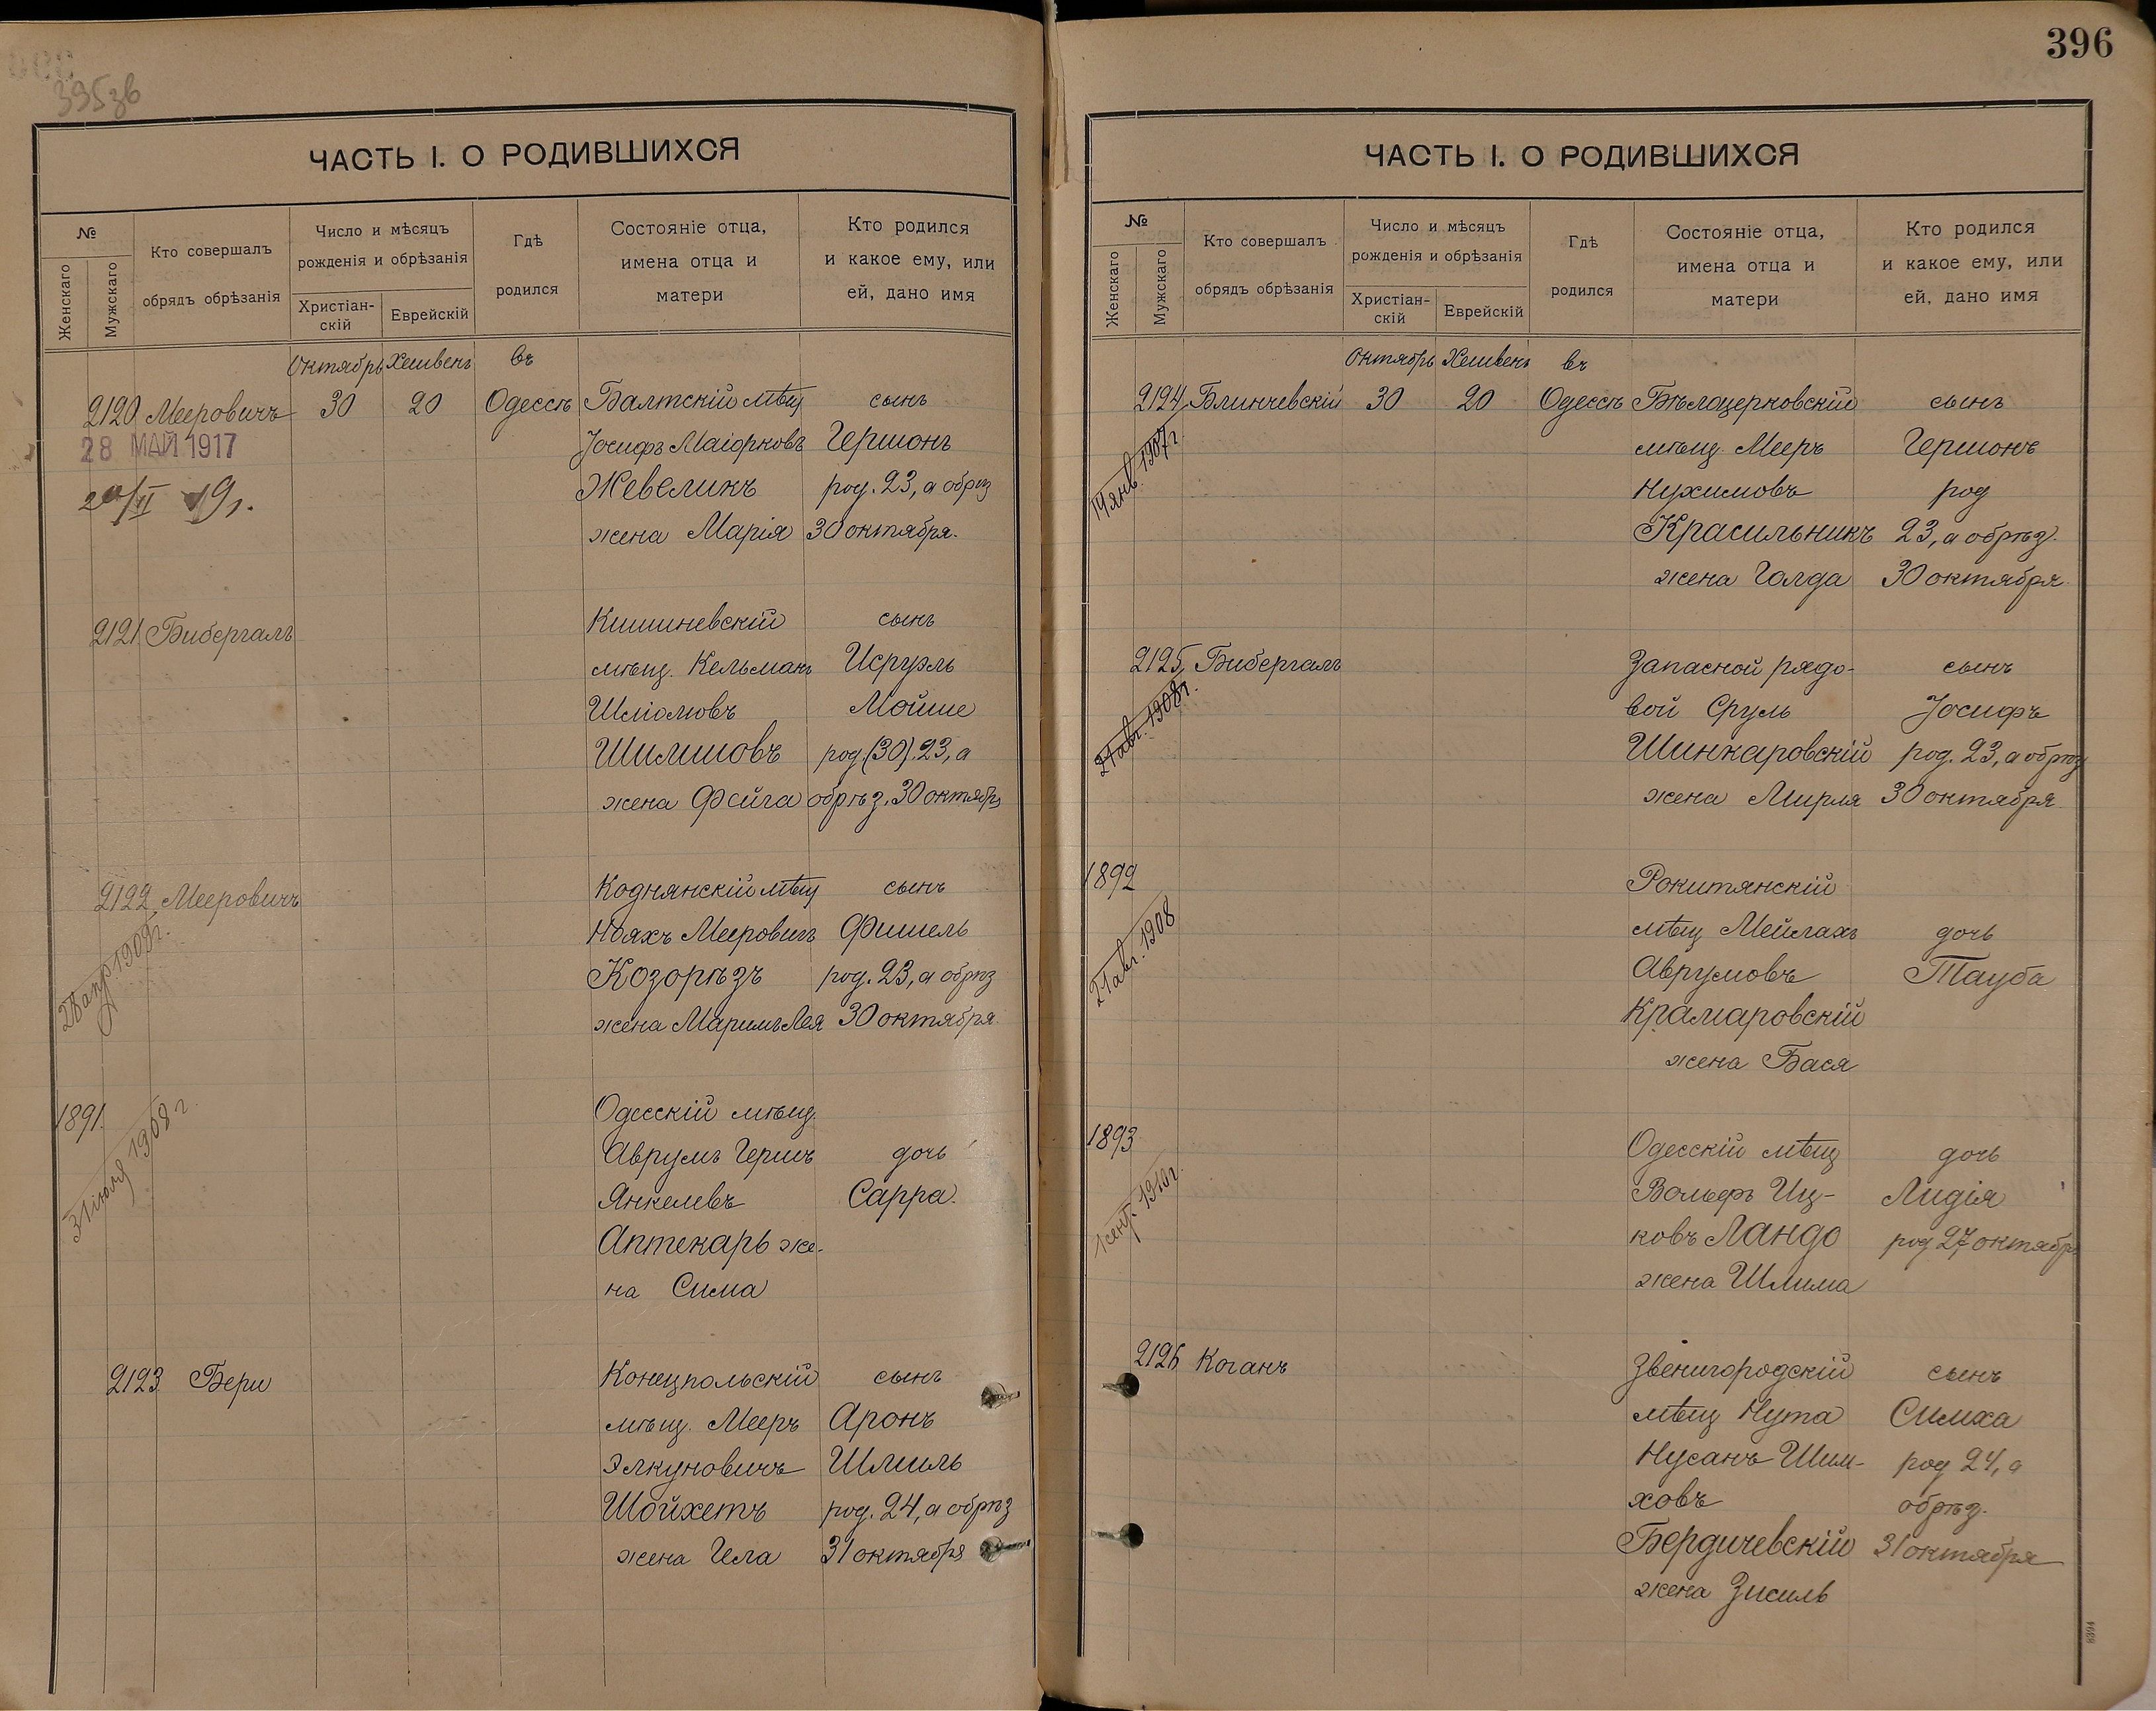 395зв
ЧАСТЬ I. О РОДИВШИХСЯ
№
Женскаго
Мужскаго
Кто совершалъ
обрядъ обрѣзанія
Число и мѣсяцъ
рожденія и обрѣзанія
Христіан-
скій
Еврейскій
Гдѣ
родился
Состояніе отца,
имена отца и
матери
Кто родился
и какое ему, или
ей, дано имя
Октябрь Хешвенъ въ
2120 Мееровичъ 30 20 Одессѣ Балтскій мѣщ сынъ
28 МАЙ 1917
Іосифъ Маіорковъ Гершонъ
Жевеликъ род. 23, а обрѣз
жена Марія 30 октября.
2121 Бибергалъ Кишиневскій сынъ
мѣщ. Кельманъ Исруэль
Шліомовъ Мойше
Шилимовъ род. (30). 23, а
жена Фейга обрѣз. 30 октябр
2122 Мееровичъ Коднянскій мѣщ сынъ
28 апр 1909г.
Нояхъ Мееровичъ Фишель
Козорѣзъ род. 23, а обрѣз
жена Маримъ Лея 30 октября.
1891. Одесскій мѣщ.
31 іюля 1908 г.
Аврумъ Гершъ дочь
Янкелевъ Сарра.
Аптекарь же-
на Сима
2123 Бери Конецпольскій сынъ
мѣщ. Мееръ Аронъ
Элкуновичъ Шмиль
Шойхетъ род. 24, а обрѣз
жена Гела 31 октября
396
ЧАСТЬ I. О РОДИВШИХСЯ
№
Женскаго
Мужскаго
Кто совершалъ
обрядъ обрѣзанія
Число и мѣсяцъ
рожденія и обрѣзанія
Христіан-
скій
Еврейскій
Гдѣ
родился
Состояніе отца,
имена отца и
матери
Кто родился
и какое ему, или
ей, дано имя
Октябрь Хешвенъ въ
2124 Блинчевскій 30 20 Одессѣ Бѣлоцерковскій сынъ
14 янв. 1907 г.
мѣщ. Мееръ Гершонъ
Нухимовъ род
Красильникъ 23, а обрѣз.
жена Голда 30 октября
2125 Бибергалъ Запасной рядо- сынъ
21 авг. 1908г.
вой Сруль Іосифъ
Шинкаровскій род. 23, а обрѣз
жена Мирля 30 октября
1892 Рокитянскій
21 авг. 1908
мѣщ Мейлахъ дочь
Аврумовъ Тауба
Крамаровскій
жена Бася
1893 Одесскій мѣщ дочь
1 сент. 1910г.
Вольфъ Иц- Лидія
ковъ Ландо род 27 октябр
жена Шлима
2126 Коганъ Звенигородскій сынъ
мѣщ Нута Симха
Нусанъ Шим- род 24, а
ховъ обрѣз.
Бердичевскій 31 октября
жена Зисиль